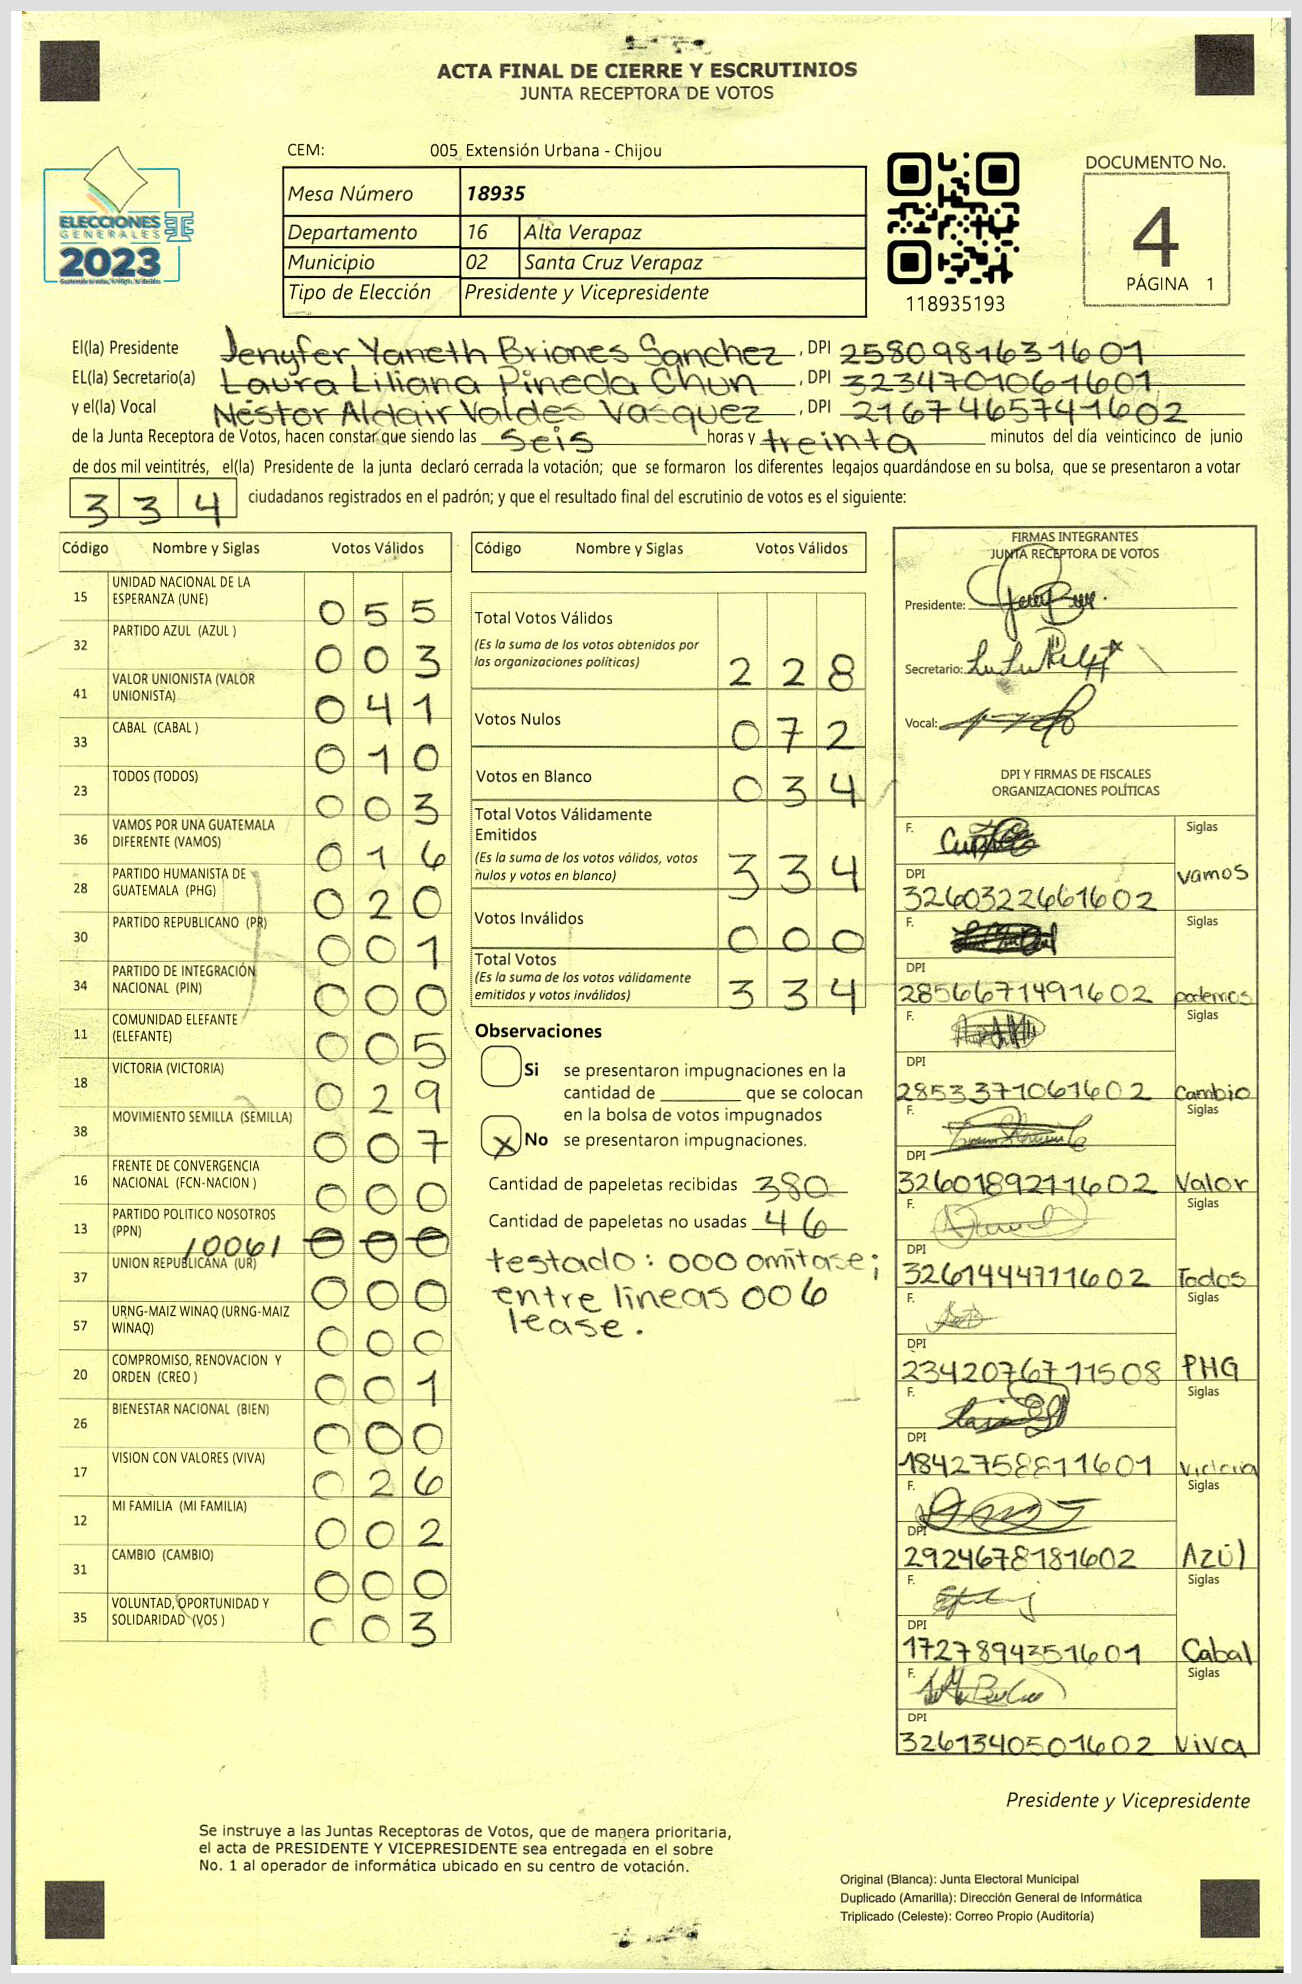 ACTA FINAL DE CIERRE Y ESCRUTINIOS
JUNTA RECEPTORA DE VOTOS
CEM: 005 Extensión Urbana - Chijou
Mesa Número 18935
Departamento 16 Alta Verapaz
Municipio 02 Santa Cruz Verapaz
Tipo de Elección Presidente y Vicepresidente
ELECCIONES
GENERALES
2023
118935193
DOCUMENTO No.
4
PÁGINA 1
El(la) Presidente Jenyfer Yaneth Briones Sanchez, DPI 2580981631601
EL(la) Secretario(a) Laura Liliana Pineda Chun, DPI 3234701061601
y el(la) Vocal Néstor Aldair Valdes Vasquez, DPI 2167465741602
de la Junta Receptora de Votos, hacen constar que siendo las seis horas y treinta minutos del día veinticinco de junio
de dos mil veintitrés, el(la) Presidente de la junta declaró cerrada la votación; que se formaron los diferentes legajos quardándose en su bolsa, que se presentaron a votar
334 ciudadanos registrados en el padrón; y que el resultado final del escrutinio de votos es el siguiente:
Código Nombre y Siglas Votos Válidos
15 UNIDAD NACIONAL DE LA
ESPERANZA (UNE) 055
32 PARTIDO AZUL (AZUL ) 003
41 VALOR UNIONISTA (VALOR
UNIONISTA) 041
33 CABAL (CABAL ) 010
23 TODOS (TODOS) 003
36 VAMOS POR UNA GUATEMALA
DIFERENTE (VAMOS) 016
28 PARTIDO HUMANISTA DE
GUATEMALA (PHG) 020
30 PARTIDO REPUBLICANO (PR) 001
34 PARTIDO DE INTEGRACIÓN
NACIONAL (PIN) 000
11 COMUNIDAD ELEFANTE
(ELEFANTE) 005
18 VICTORIA (VICTORIA) 029
38 MOVIMIENTO SEMILLA (SEMILLA) 007
16 FRENTE DE CONVERGENCIA
NACIONAL (FCN-NACION ) 000
13 PARTIDO POLITICO NOSOTROS
(PPN) /006/ 000
37 UNION REPUBLICANA (UR) 000
57 URNG-MAIZ WINAQ (URNG-MAIZ
WINAQ) 000
20 COMPROMISO, RENOVACION Y
ORDEN (CREO ) 001
26 BIENESTAR NACIONAL (BIEN) 000
17 VISION CON VALORES (VIVA) 026
12 MI FAMILIA (MI FAMILIA) 002
31 CAMBIO (CAMBIO) 000
35 VOLUNTAD, OPORTUNIDAD Y
SOLIDARIDAD (VOS ) 003
Código Nombre y Siglas Votos Válidos
Total Votos Válidos
(Es la suma de los votos obtenidos por
las organizaciones políticas) 228
Votos Nulos 072
Votos en Blanco 034
Total Votos Válidamente
Emitidos
(Es la suma de los votos válidos, votos
nulos y votos en blanco) 334
Votos Inválidos 000
Total Votos
(Es la suma de los votos válidamente
emitidos y votos inválidos) 334
Observaciones
Si se presentaron impugnaciones en la
cantidad de ________ que se colocan
en la bolsa de votos impugnados
X No se presentaron impugnaciones.
Cantidad de papeletas recibidas 380
Cantidad de papeletas no usadas 46
testado: 000 omitase;
entre lineas 006
lease.
FIRMAS INTEGRANTES
JUNTA RECEPTORA DE VOTOS
Presidente:
Secretario:
Vocal:
DPI Y FIRMAS DE FISCALES
ORGANIZACIONES POLÍTICAS
F. Siglas
DPI
3260322661602 vamos
F. Siglas
DPI
2856671491602 podemos
F. Siglas
DPI
2853371061602 Cambio
F. Siglas
DPI
3260189211602 Valor
F. Siglas
DPI
3261444711602 Todos
F. Siglas
DPI
2342076711508 PHG
F. Siglas
DPI
1842758811601 Victoria
F. Siglas
DPI
2924678181602 AZUl
F. Siglas
DPI
1727894351601 Cabal
F. Siglas
DPI
3261340501602 Viva
Presidente y Vicepresidente
Se instruye a las Juntas Receptoras de Votos, que de manera prioritaria,
el acta de PRESIDENTE Y VICEPRESIDENTE sea entregada en el sobre
No. 1 al operador de informática ubicado en su centro de votación.
Original (Blanca): Junta Electoral Municipal
Duplicado (Amarilla): Dirección General de Informática
Triplicado (Celeste): Correo Propio (Auditoría)